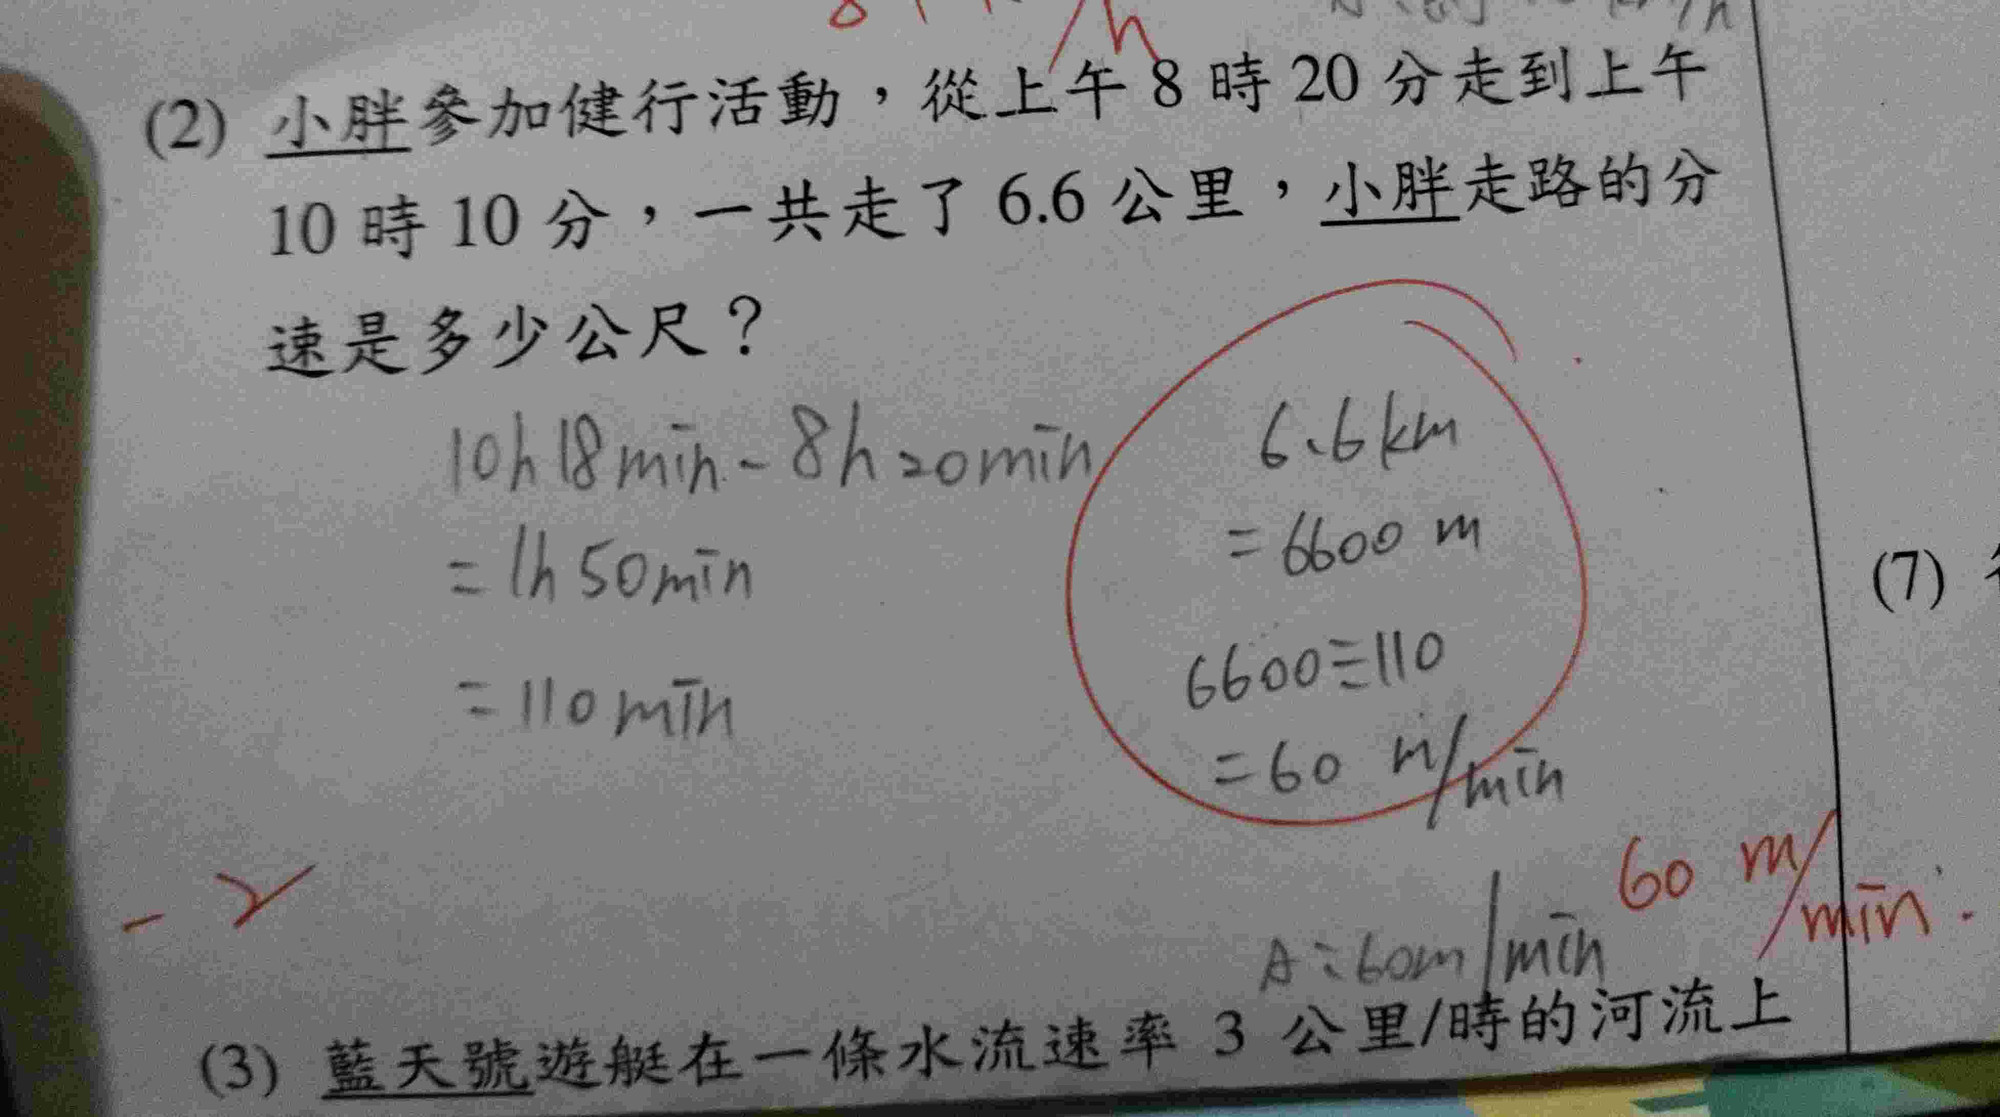 (2) 小胖參加健行活動，從上午 8 時 20 分走到上午
10 時 10 分，一共走了 6.6 公里，小胖走路的分
速是多少公尺？
10h 18min - 8h 20min
= 1h 50min
= 110 min
6.6km
= 6600 m
6600÷110
= 60 m/min
-2
60 m/min.
A: 60m/min
(3) 藍天號遊艇在一條水流速率 3 公里/時的河流上
(7)